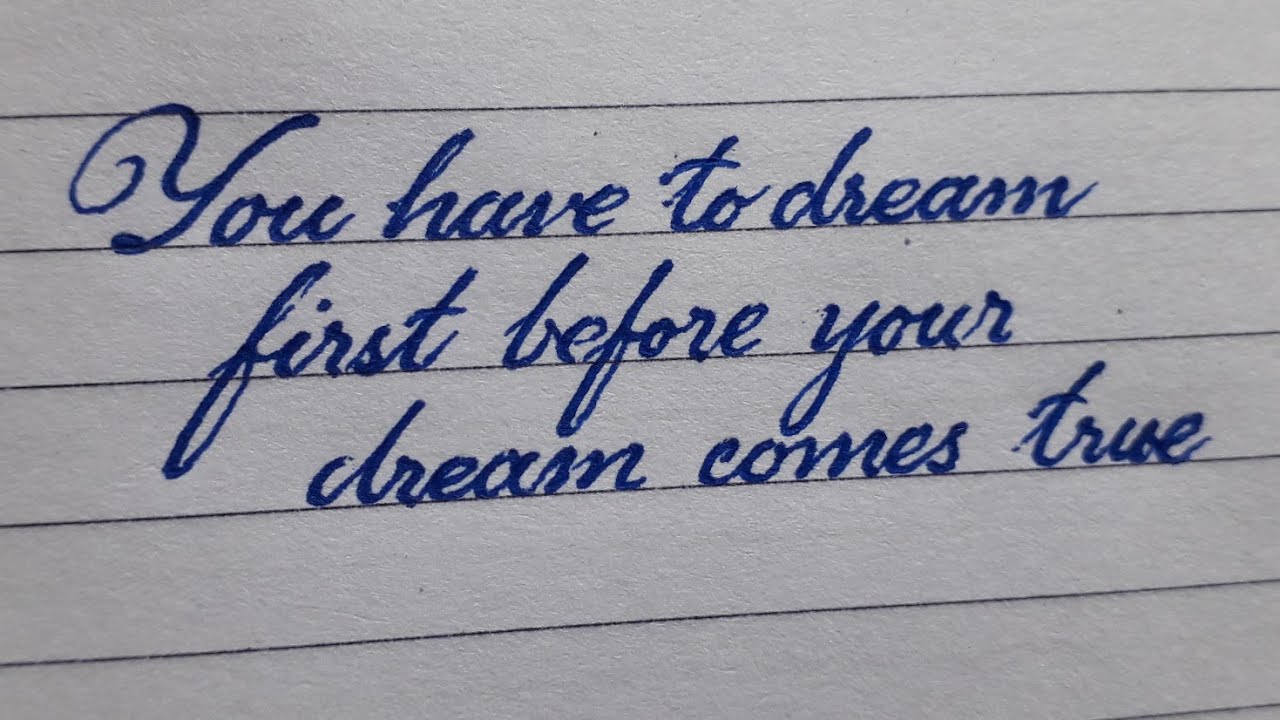 You have to dream
first before your
dream comes true